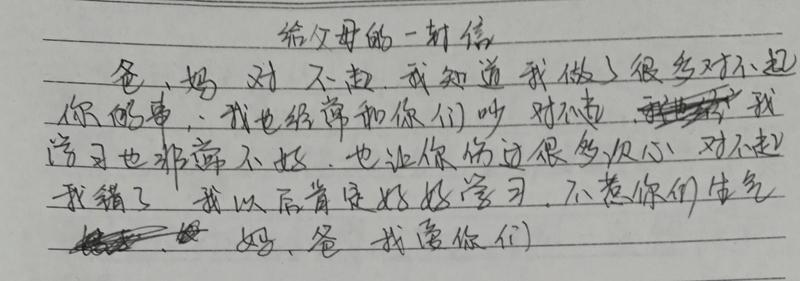 给父母的一封信
爸、妈 对 不起.我知道我做了很多对不起
你的事,.我也经常和你们吵 对不起. 我
学习也非常不好.也让你伤过很多次心 对不起
我错了 我以后肯定好好学习.不惹你们生气
妈、爸 我爱你们